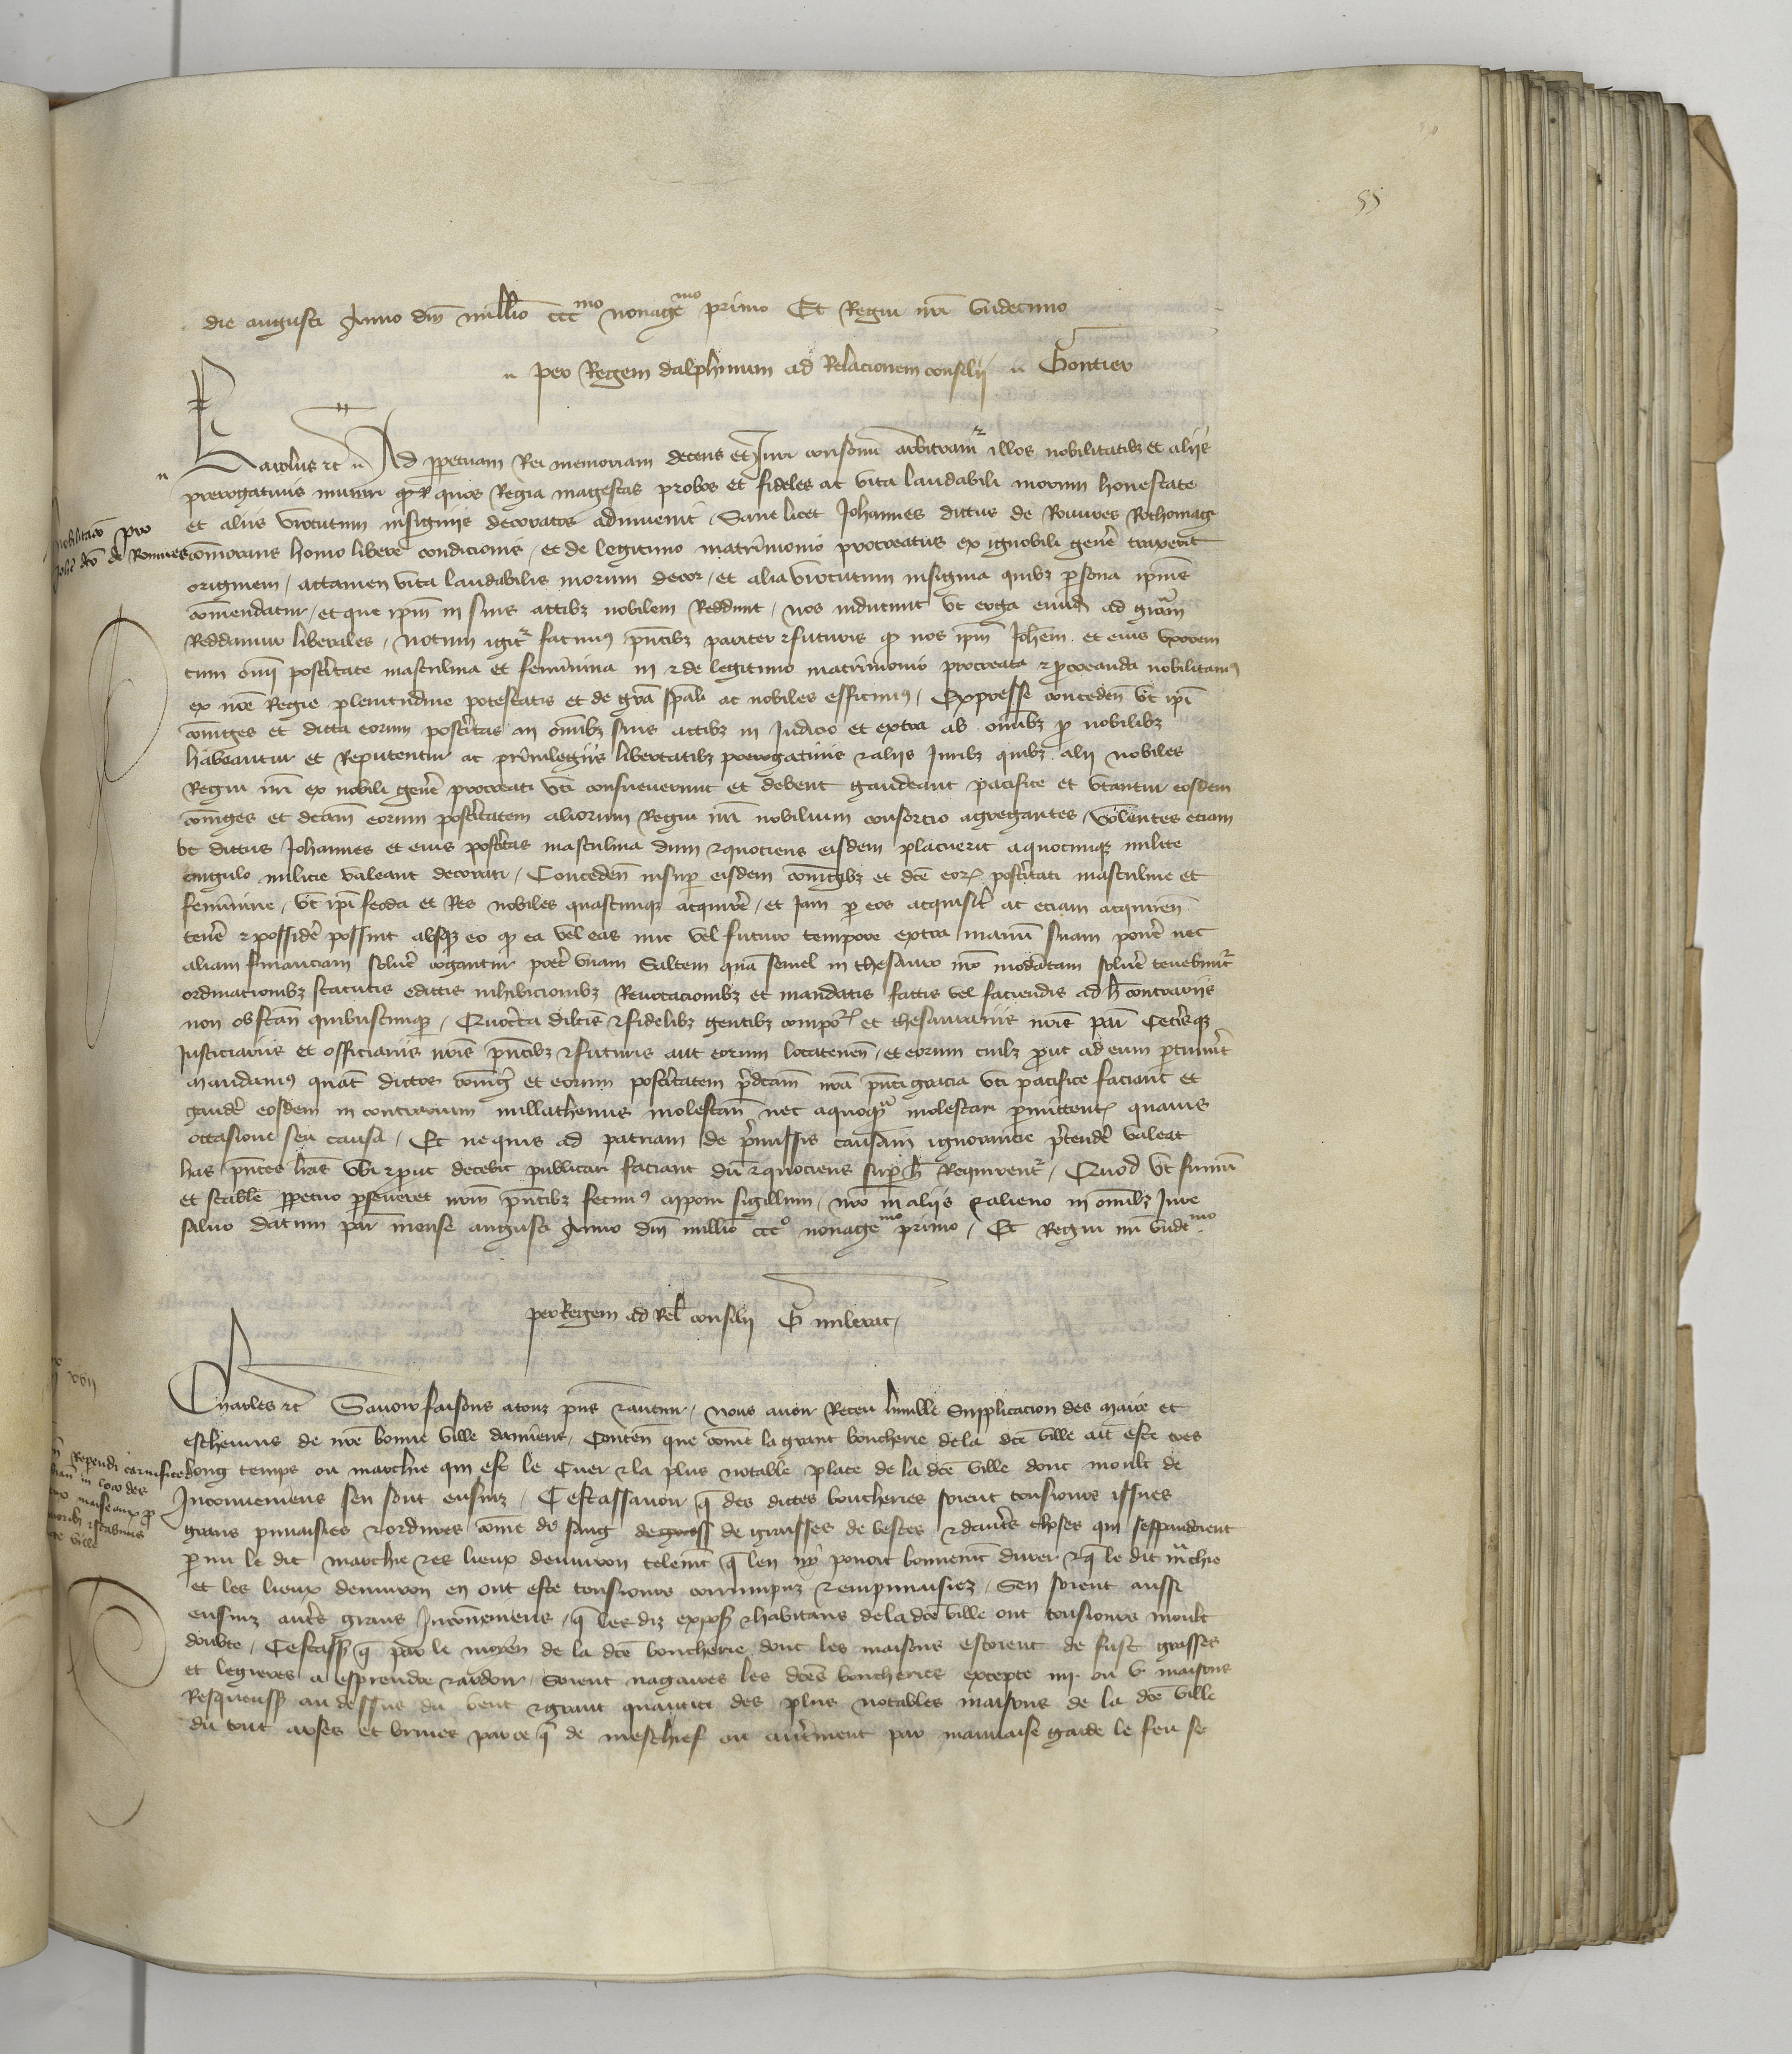 55
die augusti Anno dni millio ccc mo nonage mo primo Et Regni nri undecimo
per Regem dalphinum ad Relacionem consilii Gontier
Karolus etc Ad perpetuam Rei memoriam decens et Juri consonu arbitramur illos nobilitatibz et aliis
prerogativis muniri quos Regia magestas probos et fideles ac vita laudabili morum honestate
et aliis virtutum insigniis decoratos adinvenit Sane licet Johannes dictus de Rouvres Rothomagi
nobilitacio pro
Johe dco de Rouvres
comorans homo libere condicionis et de legitimo matrimonio procreatus ex ignobili genere traxerit
originem actamen vita laudabilis morum decor et alia virtutum insignia quibz persona ipius
comendatur et que ipm in suis actibz nobilem Reddunt nos inducunt ut erga eumd ad gram
Reddamur liberales Notum igitr facimus pntibz pariter et futuris qd nos ipm Johem et eius uxorem
cum omi posteritate masculina et feminina in et de legitimo matrimonio procreata et procreanda nobilitamus
ex nre Regie plenitudine potestatis et de gra spali ac nobiles efficimus Expresse conceden ut ipi
coniuges et dicta eorum posteritas in omibz suis actibz in Judicio et extra ab omibz pro nobilibz
habeantur et Reputentur ac privilegiis libertatibz prerogativis et aliis Juribz quibz alii nobiles
Regni nri ex nobili genere procreati uti consueverunt et debent gaudeant pacifice et utantur eosdem
coniuges et dctam eorum posteritatem aliorum Regni nri nobilium consorcio agregantes Volentes eciam
ut dictus Johannes et eius posteritas masculina dum et quociens eisdem placuerit a quocumqz milite
cingulo milicie valeant decorari Conceden insuper eisdem coniugibz et dce eor posteritati masculine et
feminine ut ipi feoda et Res nobiles quascumqz acquirere et Jam per eos acquisit ac eciam acquiren
tenere et possidere possint absqz eo qd ea vel eas nunc vel futuro tempore extra manu suam ponere nec
aliam financiam solvere cogantur preter unam Saltem qua semel in thesauro nro moderatam solvere tenebuntr
ordinacionibz statutis edictis inhibicionibz Revocacionibz et mandatis factis vel faciendis ad h contrariis
non obstan quibuscumqz Quocirca dilcis et fidelibz gentibz compor et thesaurariis nris par Ceterisqz
Justiciariis et officiariis nris pntibz et futuris aut eorum locatenen et eorum cuilz prout ad eum pertinuerit
mandamus quat dictos coniuges et eorum posteritatem predctam nra pnti gracia uti pacifice faciant et
gaudere eosdem in contrarium nullathenus molestan nec a quoqua molestari permittent quavis
occasione seu causa Et ne quis ad patriam de premissis causam ignorancie pretendere valeat
has pntes lras ubi et prout decebit publicari faciant du et quociens super h Requirentr Quod ut firmu
et stabile perpetuo perseveret nrm pntibz fecimus apponi sigillum nro in aliis et alieno in omibz Jure
salvo datum par mense augusti Anno dni millio ccc o nonage mo primo Et Regni nri unde mo
per Regem ad Rel consilii G mlerac
xvii
Charles etc Savoir faisons a touz pns et avenir nous avoir Receu humble Supplicacion des Maire et
eschevins de nre bonne ville damiens Conten que come la grant boucherie de la dce ville ait este tres
long temps ou marchie qui est le Cuer et la plus notable place de la dce ville dont moult de
Inconveniens sen sont ensuiz Cestassavoir q des dictes boucheries soient tousiours issues
grans punaisies et ordures come de sang de gress de graisses de bestes et dautres choses qui sespandoient
par mi le dit marchie et es lieux denviron telemt q len ny povoit bonnemt durer et q le dit mchie
et les lieux denviron en ont este tousiours corrumpuz et empunaisiez Sen soient aussi
ensuiz autres grans Inconveniens q les diz expos et habitans de la dce ville ont tousiours moult
doubte Cestass q par le moyen de la dce boucherie dont les maisons estoient de fust grasses
et legieres a esprendre et ardoir Soient nagaires les dces boucheries excepte iiii ou v maisons
Resquensss au dessus du vent et grant quantite des plus notables maisons de la dce ville
du tout arses et bruies par ce q de meschief ou autrement par mauvaise garde le feu se